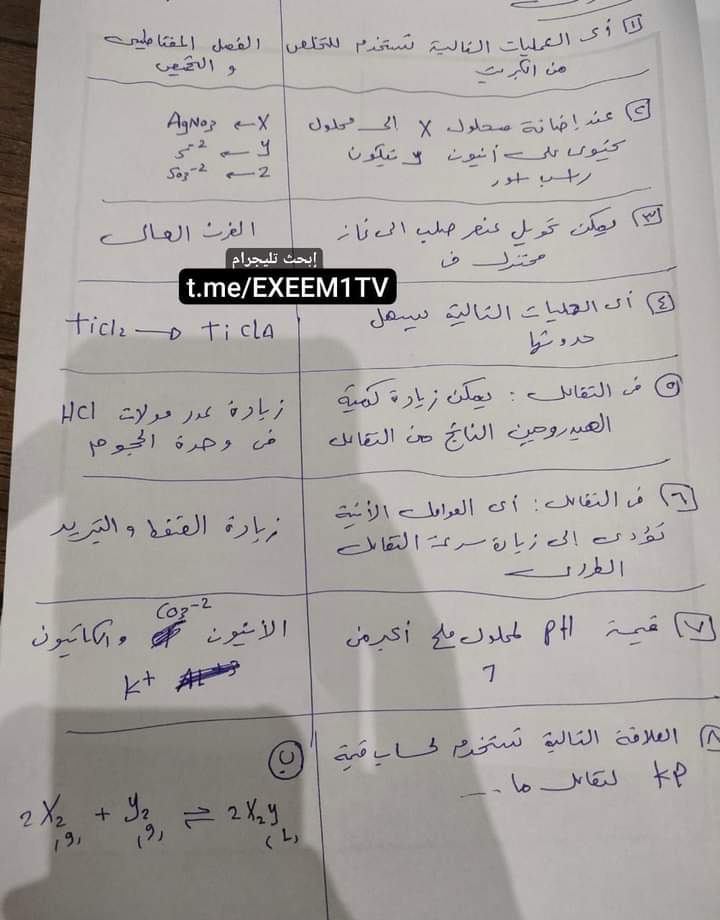 ١ أى العمليات التالية تستخدم للتخلص
من الكبريت
الفصل المغناطيسى
و التحميص
٢ عند إضافة محلول X الى محلول
يحتوى على أنيون y يتكون
راسب اسود
AgNO3 ← X
S-2 ← y
SO3-2 ← Z
٣ يمكن تحويل عنصر صلب الى غاز
مختزل ف
الفرن العالى
إبحث تليجرام
t.me/EXEEM1TV
٤ أى العمليات التالية يسهل
حدوثها
TiCl2 → TiCl4
٥ فى التفاعل : يمكن زيادة كمية
الهيدروجين الناتج من التفاعل
زيادة عدد مولات HCl
فى وحدة الحجوم
٦ فى التفاعل : أى العوامل الأتية
تؤدى إلى زيادة سرعة التفاعل
الطردى
زيادة الضغط و التبريد
٧ قيمة PH لمحلول ملح أكبر من
7
الأنيون CO3-2 والكاتيون
K+
٨ العلاقة التالية تستخدم لحساب قيمة
KP لتفاعل ما ....
ب
2X2(g) + y2(g) ⇌ 2X2y(L)